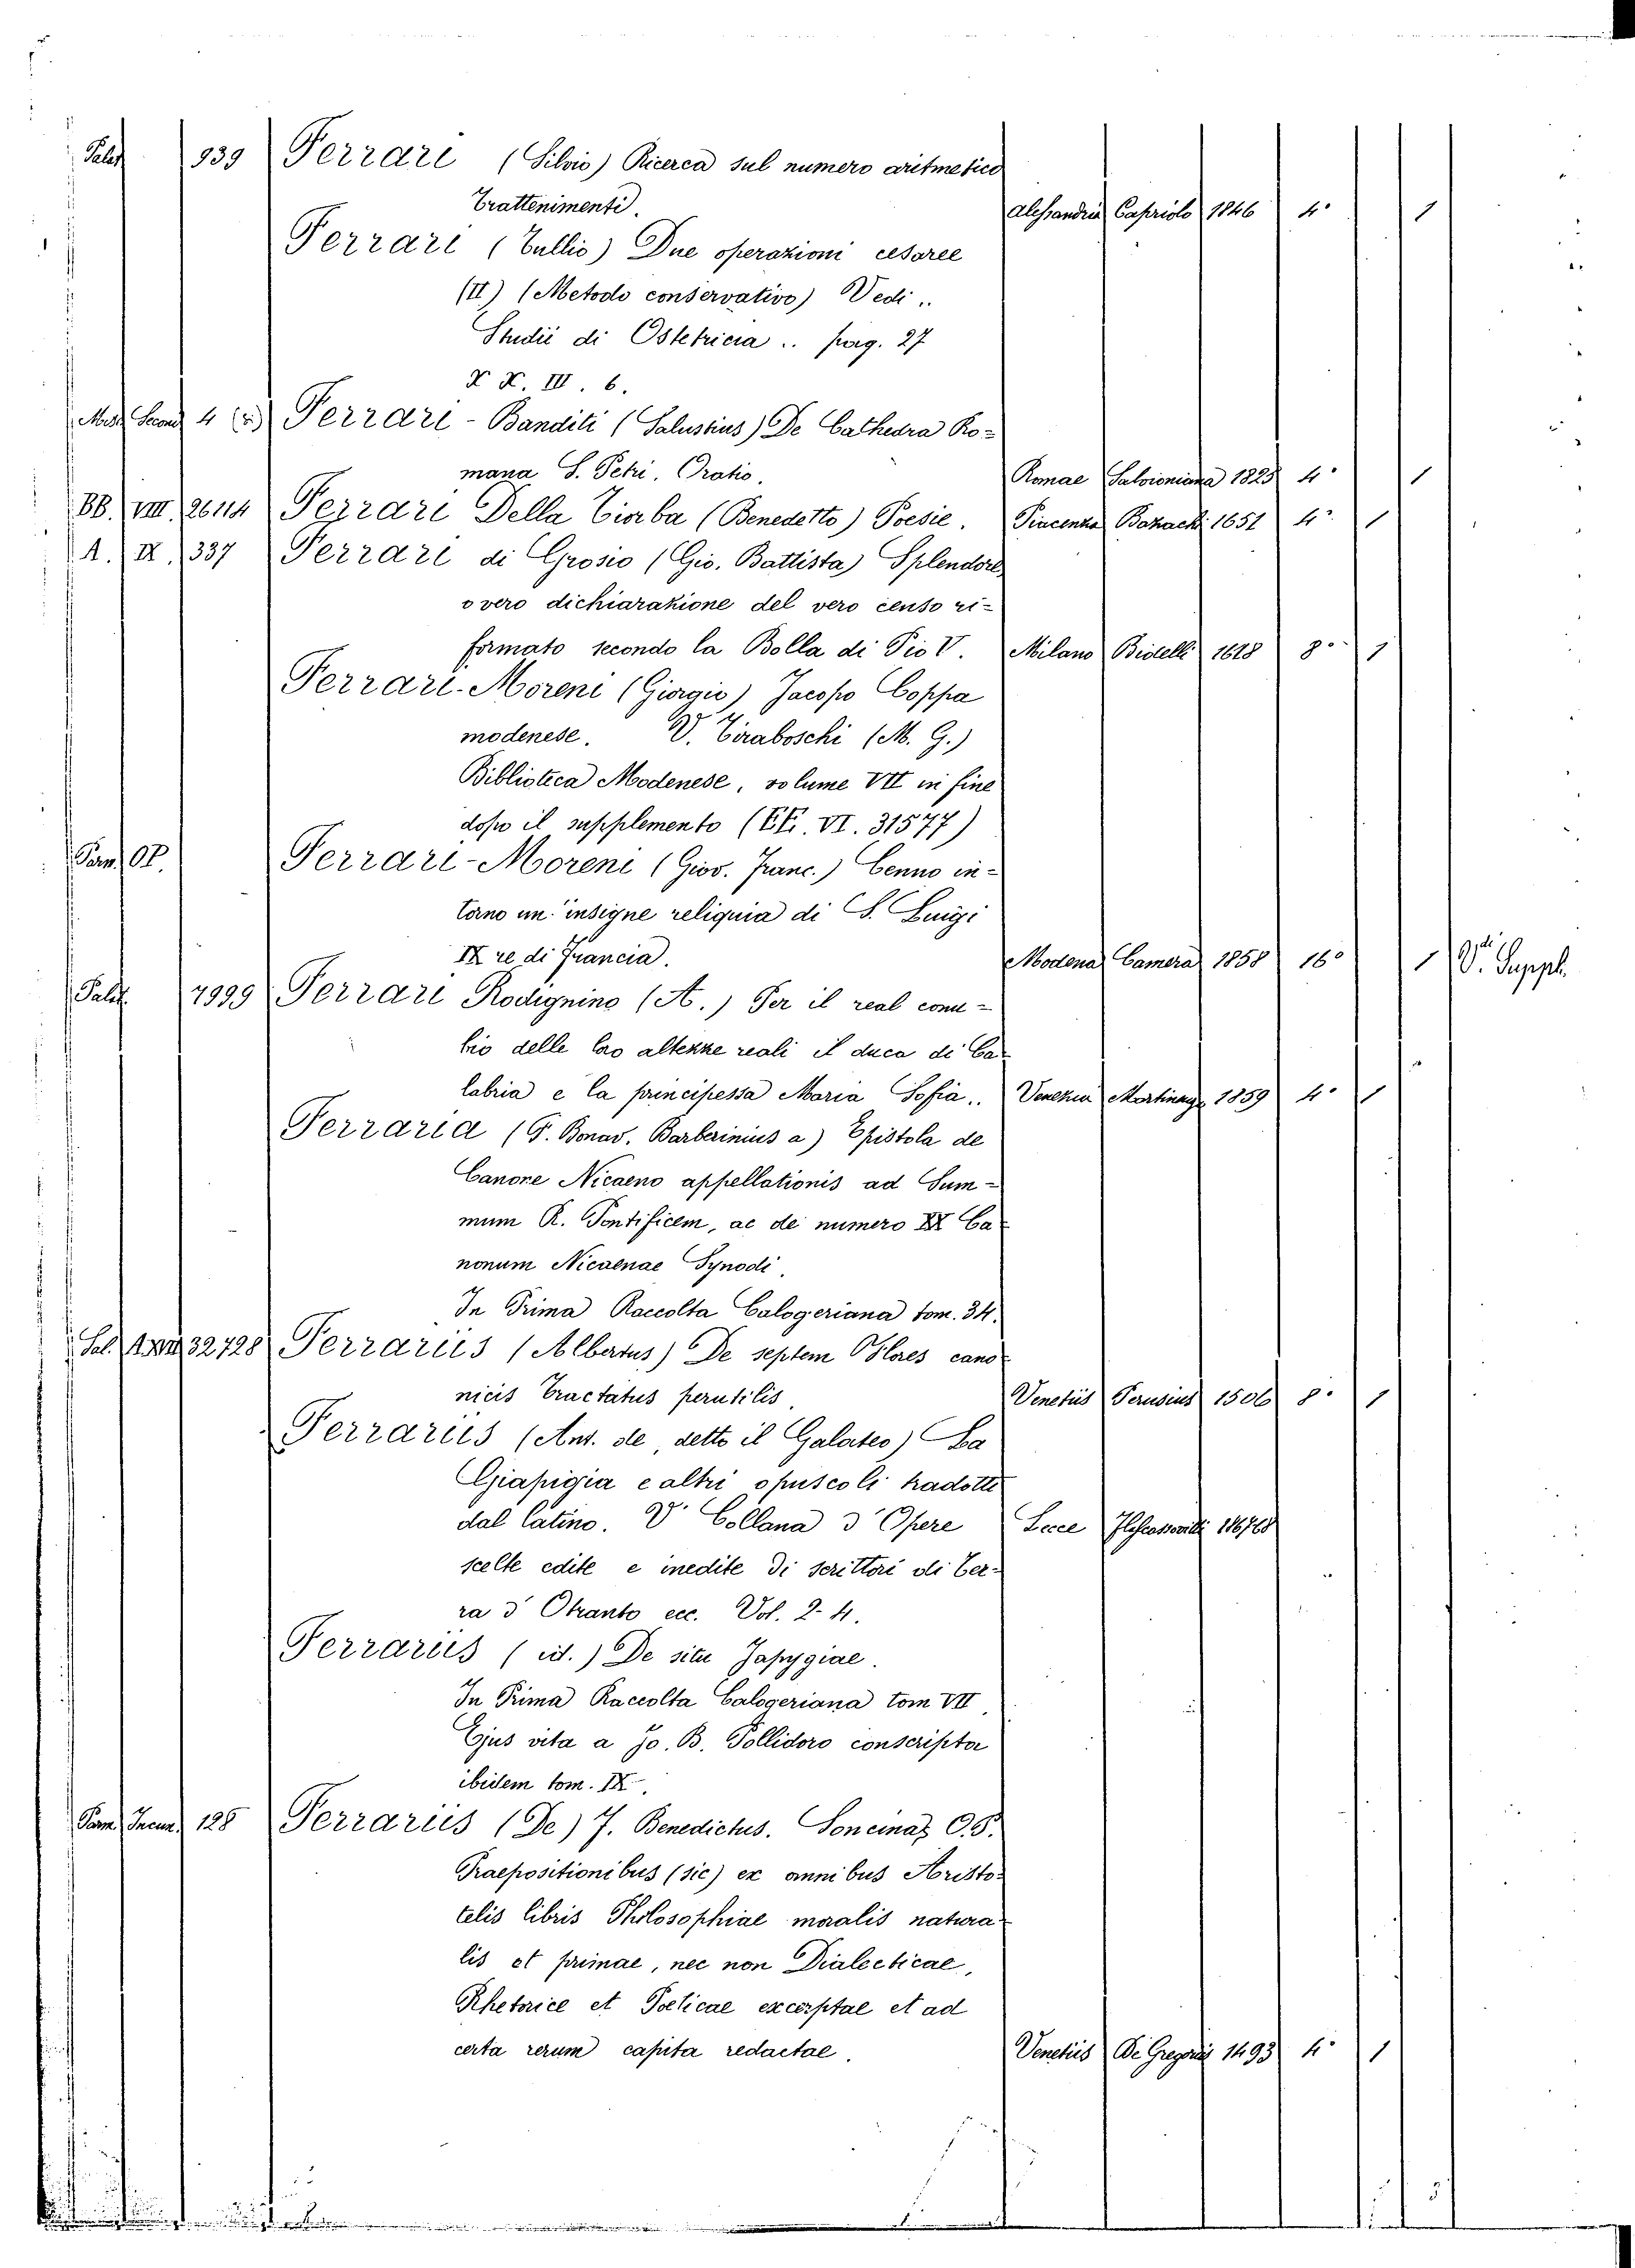 Palat 939 Ferrari (Silvio) Ricerca sul numero aritmetico
Trattenimenti. Alessandria Capriolo 1846 4° 1
Ferrari (Tullio) Due operazioni cesaree
(II) (Metodo conservativo) Vedi..
Studii di Ostetricia .. pag. 27
X X. III. 6.
4 Ferrari-Banditi (Salustius) De Cathedra Ro-
mana S. Petri. Oratio. Romae Salvioniana 1825 4° 1
BB. VIII. 26114 Ferrari Della Tiorba (Benedetto) Poesie. Piacenza Bazach. 1651 4° 1
A. IX. 337 Ferrari di Grosio (Gio. Battista) Splendore
overo dichiarazione del vero censo ri-
formato secondo la Bolla di Pio V. Milano Bidelli 1618 8° 1
Ferrari-Moreni (Giorgio) Jacopo Coppa
modenese. V. Tiraboschi (M. G.)
Biblioteca Modenese, volume VII in fine
dopo il supplemento (EE. VI. 31577)
Ferrari-Moreni (Giov. Franc.) Cenno in-
torno un' insigne reliquia di S. Luigi
IX re di Francia. Modena Camera 1858 16° 1 V. Suppl.
Palat. 7999 Ferrari Rodignino (A.) Per il real conu-
bio delle loro altezze reali il duca di Ca-
labria e la principessa Maria Sofia.. Venezia Martinago 1859 4° 1
Ferraria (F. Bonav. Barberinius a) Epistola de
Canone Nicaeno appellationis ad Sum-
mum R. Pontificem, ac de numero XX Ca-
nonum Nicaenae Synodi.
In Prima Raccolta Calogeriana tom. 34.
32728 Ferrariis (Albertus) De septem Hores cano-
nicis Tractatus perutilis. Venetiis Perusius 1506 8° 1
Ferrariis (Ant. de, detto il Galateo) La
Giapigia e altri opuscoli tradotti
dal latino. V. Collana d' Opere Lecce
scelte edite e inedite di scrittori di Ter-
ra d' Otranto ecc. Vol. 2-4.
Ferrariis (id.) De situ Japygiae.
In Prima Raccolta Calogeriana tom VII
Ejus vita a Jo. B. Pollidoro conscripta
ibidem tom. IX.
Parm. Incun. 128 Ferrariis (De) J. Benedictus. Soncinas O.P.
Praepositionibus (sic) ex omnibus Aristo-
telis libris Philosophiae moralis natura-
lis et primae, nec non Dialecticae,
Rhetorice et Poeticae excerptae et ad
certa rerum capita redactae. Venetiis De Gregoriis 1493 4° 1